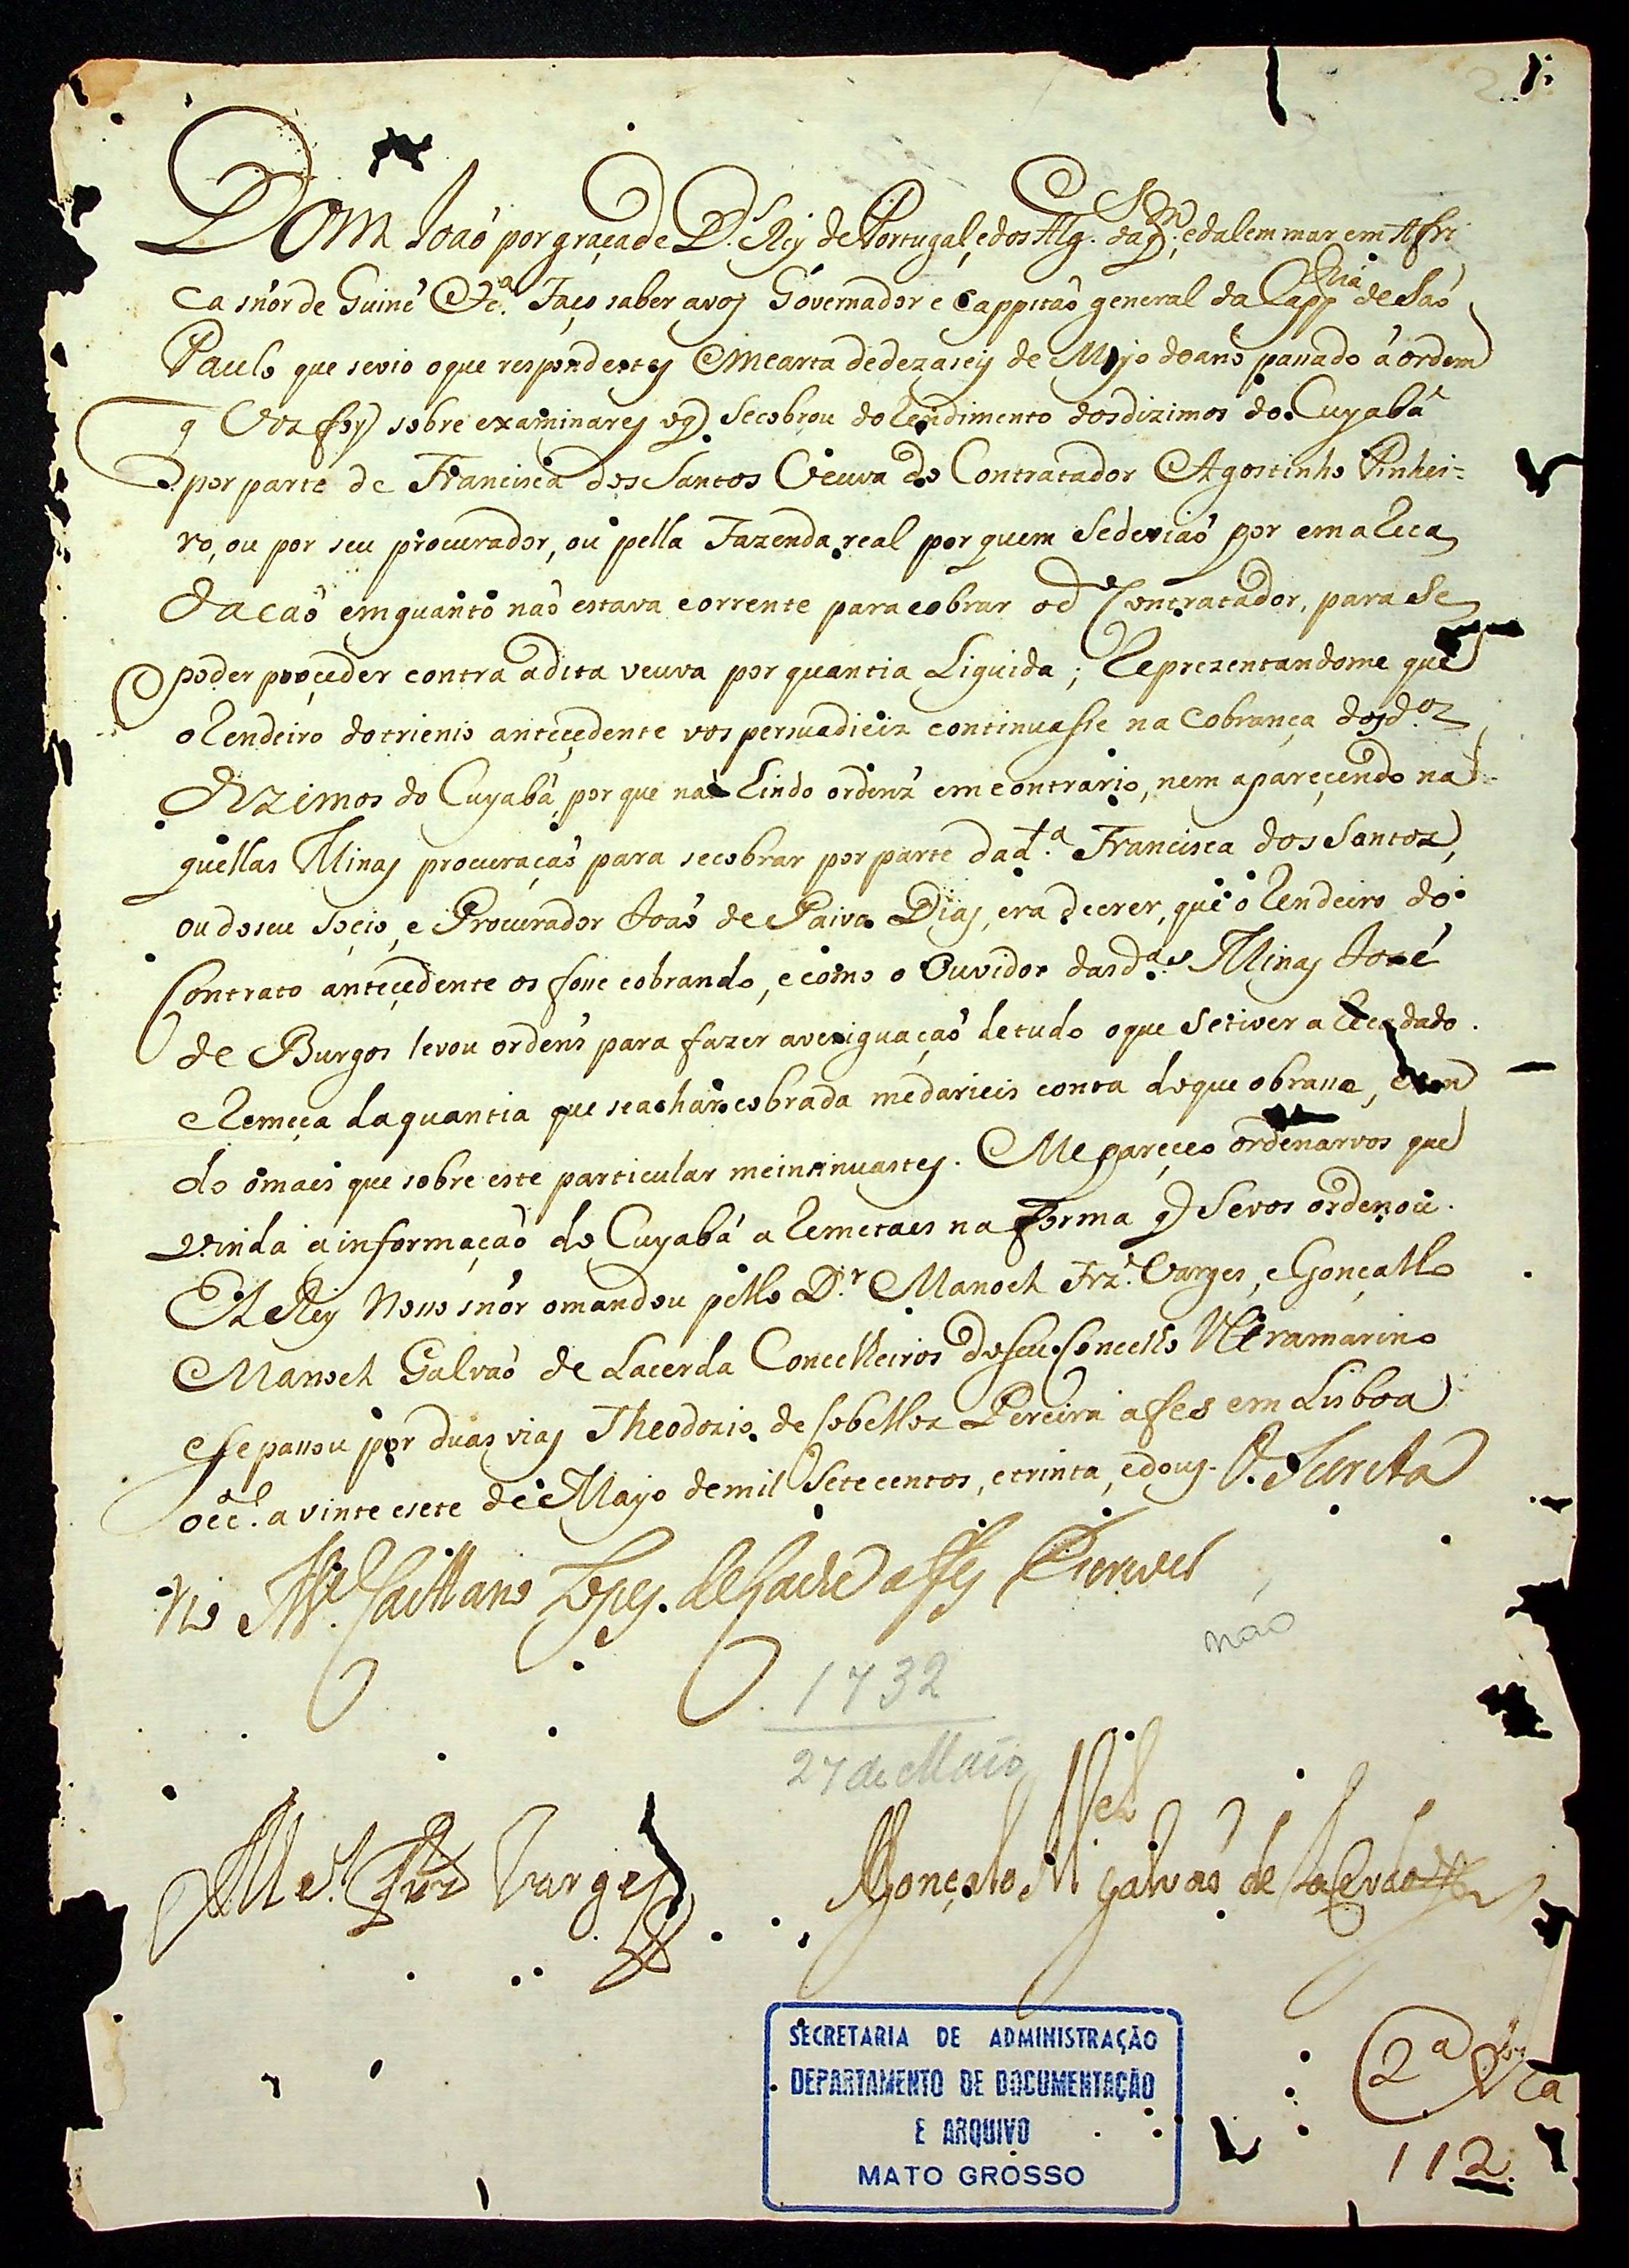 Dom Joaõ por graça de D.s Rey de Portugal, e dos Alg. daq.m, e dalem mar em Afri
ca sñor de Guinê &c.a Faço saber avos Governador e Cappitaõ general da Capp.nia de Saõ
Paulo que sevio oque respondestes em carta de dezaseis de Mayo do anõ passado á ordem
q vos foy sobre examinares oq. Secobrou do Rendimento dos dizimos do Cuyabá
por parte de Francisca dos Santos Veuva do Contratador Agostinho Pinhei=
ro, ou por seu procurador, ou pella Fazenda real por quem Sedeviaõ por em a Reca
dacaõ emquanto naõ estava corrente para cobrar od.o Contratador, para Se
poder proçeder contra adita veuva por quantia Liquida; Reprezentandome que
o Rendeiro do trienio anteçedente vos persuadieis continuasse na Cobrança dos d.os
Dizimos do Cuyabá, por que naõ hindo ordenz em contrario, nem apareçendo na
quellas Minas procuraçaõ para secobrar por parte da d.ta Francisca dos Santoz,
ou do seu Soçio, e Procurador Joaõ de Paiva Dias, era decrer, que o Rendeiro do
Contrato anteçedente os fosse cobrando, e como o Ouvidor das d.as Minas José
de Burgos levou ordens para fazer averiguaçaõ de tudo o que Setiver a Recadado.
e Remeça da quantia que se achar cobrada medarieis conta do que obrasse,
do omais que sobre este particular meinsinuastes. Me pareçeo ordenarvos que
vinda a informaçaõ do Cuyabá a Remetaes na forma q Sevos ordenou.
El Rey Nosso snõr omandou pello D.r Manoel Frz. Varges, e Gonçallo
Manoel Galvaõ de Lacerda Concelheiros do seu Concelho Ultramarino
e se passou por duas vias Theodozio de Cobelloz Pereira a fes em Lisboa
occ.l a vinte e sete de Mayo de mil Sete centos, e trinta, e dous. O Secreta
rio M.el Caettano Lopes. de Lavre a fes escrever
não
1732
27 de Maio
M.el Frz Varges
Gonçalo M.el Galvaõ de Lacerda
SECRETARIA DE ADMINISTRAÇÃO
DEPARTAMENTO DE DOCUMENTAÇÃO
E ARQUIVO
MATO GROSSO
2.a Via
112.